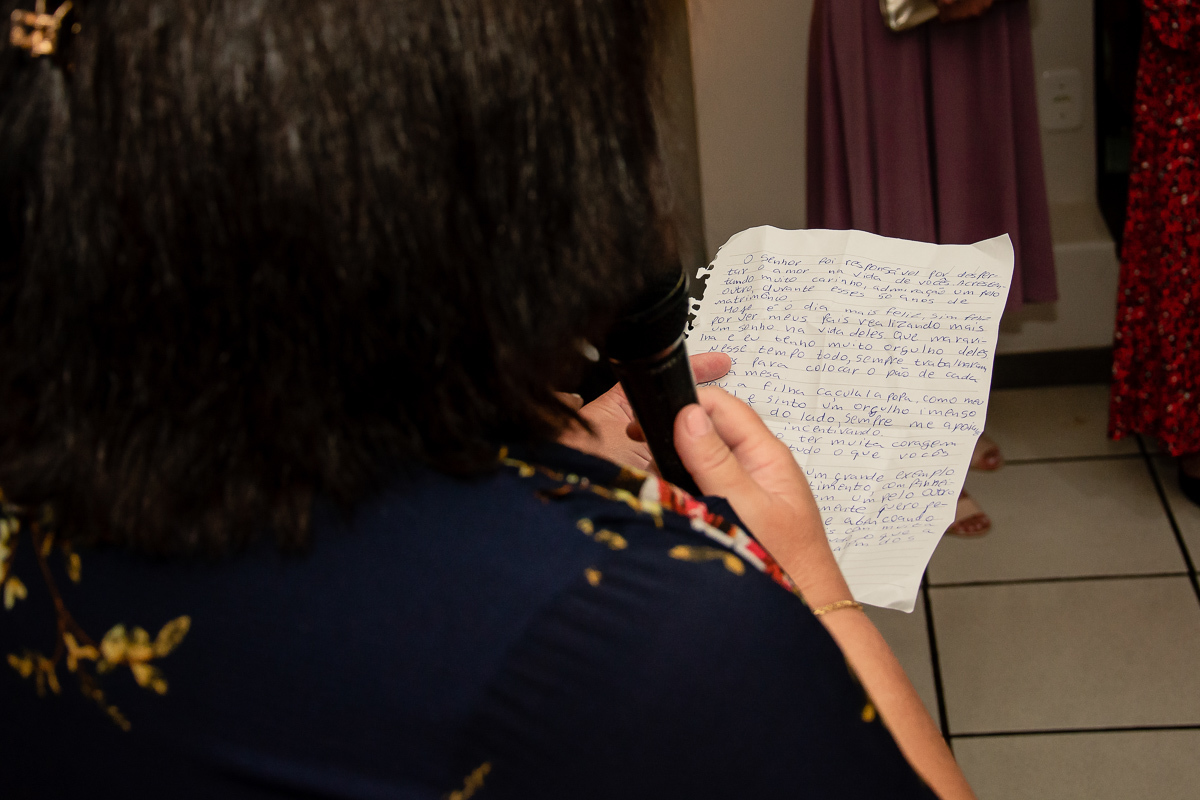 O Senhor foi responsável por desper-
tar o amor na vida de vocês. Acresen-
tando muito carinho, admiração um pelo
outro, durante esses 50 anos de
matrimônio.
Hoje é o dia mais feliz, sim feliz
por ver meus pais realizando mais
um sonho na vida deles. Que maravi-
lha e eu tenho muito orgulho deles
Nesse tempo todo, sempre trabalharam
para colocar o pão de cada
mesa
a filha caçula la popa, como meu
e sinto um orgulho imenso
do lado, sempre me apoia
incentivando.
ter muita coragem
tudo o que vocês
um grande exemplo
um pelo outro
quero pe-
e abençoando
com
o que